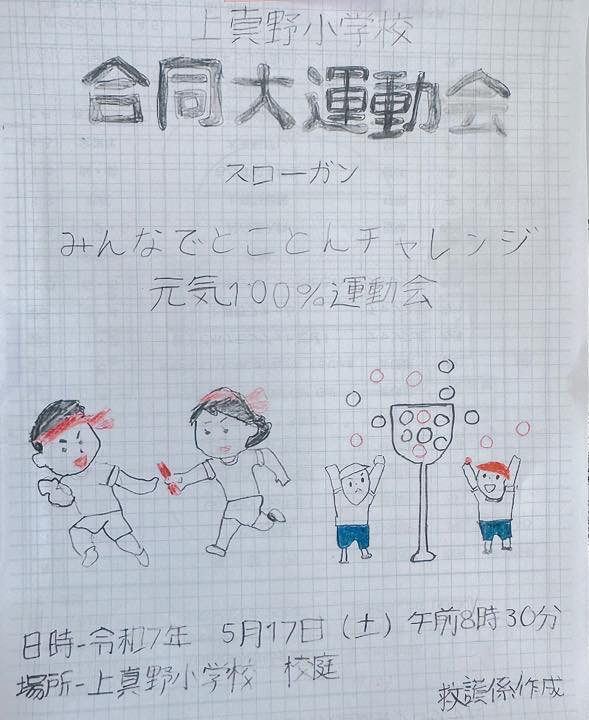 上真野小学校
合同大運動会
スローガン
みんなでとことんチャレンジ
元気100%運動会
日時-令和7年 5月17日(土)午前8時30分
場所-上真野小学校 校庭
救護係作成